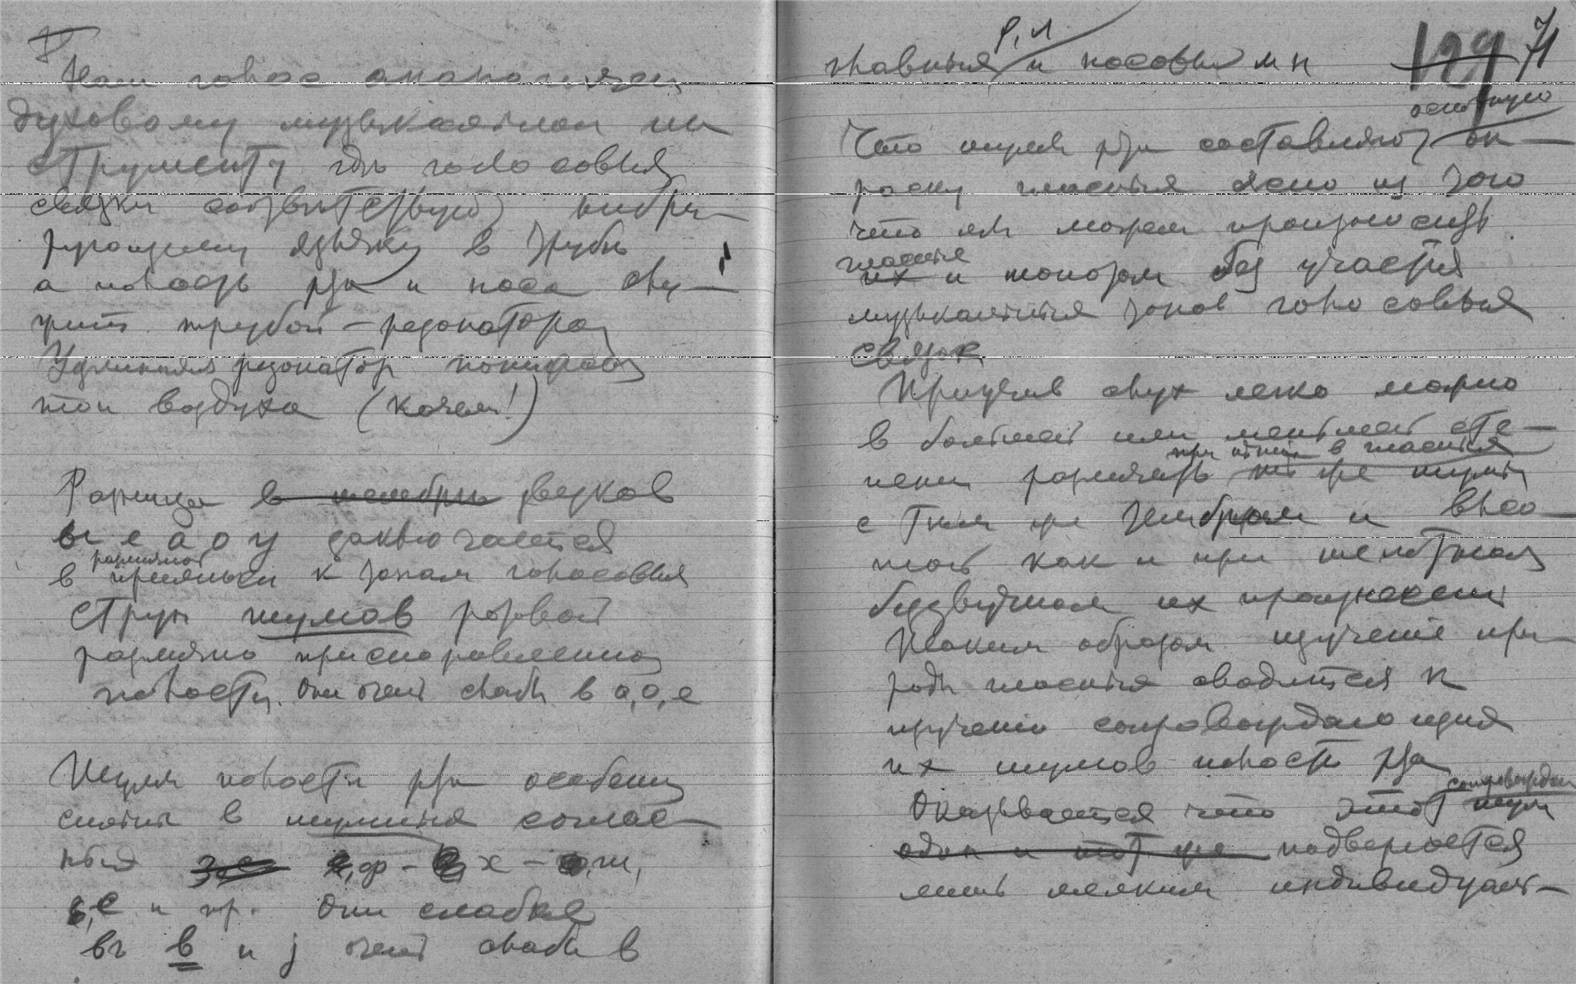 Наш голос аналогичен
духовому музыкальном ин
струменту где голосовыя
связки соответствуют вибри-
рующему язычку в трубе
а полость рта и носа слу-
жит трубой-резонатором
Удлинняя резонатор понижаем
тон воздуха (кочем!)
Разница в тембры звуков
ы е а о у заключается
различной
в примеси к тонам голосовых
струн шумов ротовой
различно приспоровленной
полости. Они очень слабы в а, о, е
Шумы полости рта особенно
сильны в шумных соглас-
ных зс ф - х - ш,
з, с и пр. Они слабее
въ в и j очень слабы в
р, л
плавных и носовых м н
129 71
основную
Что шумы рта составляют ок-
раску гласных ясно из того
что мы можем произносить
гласные
их и шопотом без участия
музыкальных тонов голосовых
связок
Приучив слух легко можно
в большей или меньшей сте-
при пении в гласных
пени различать те же шумы
с тем же тембром и высо-
той как и при шепотном
беззвучном их произнесении
Таким образом изучение при-
роды гласных сводится к
изучению сопровождающих
их шумов полости рта
сопровождающ
Оказывается что этот шум
один и тот же подвергается
лишь мелким индивидуаль-